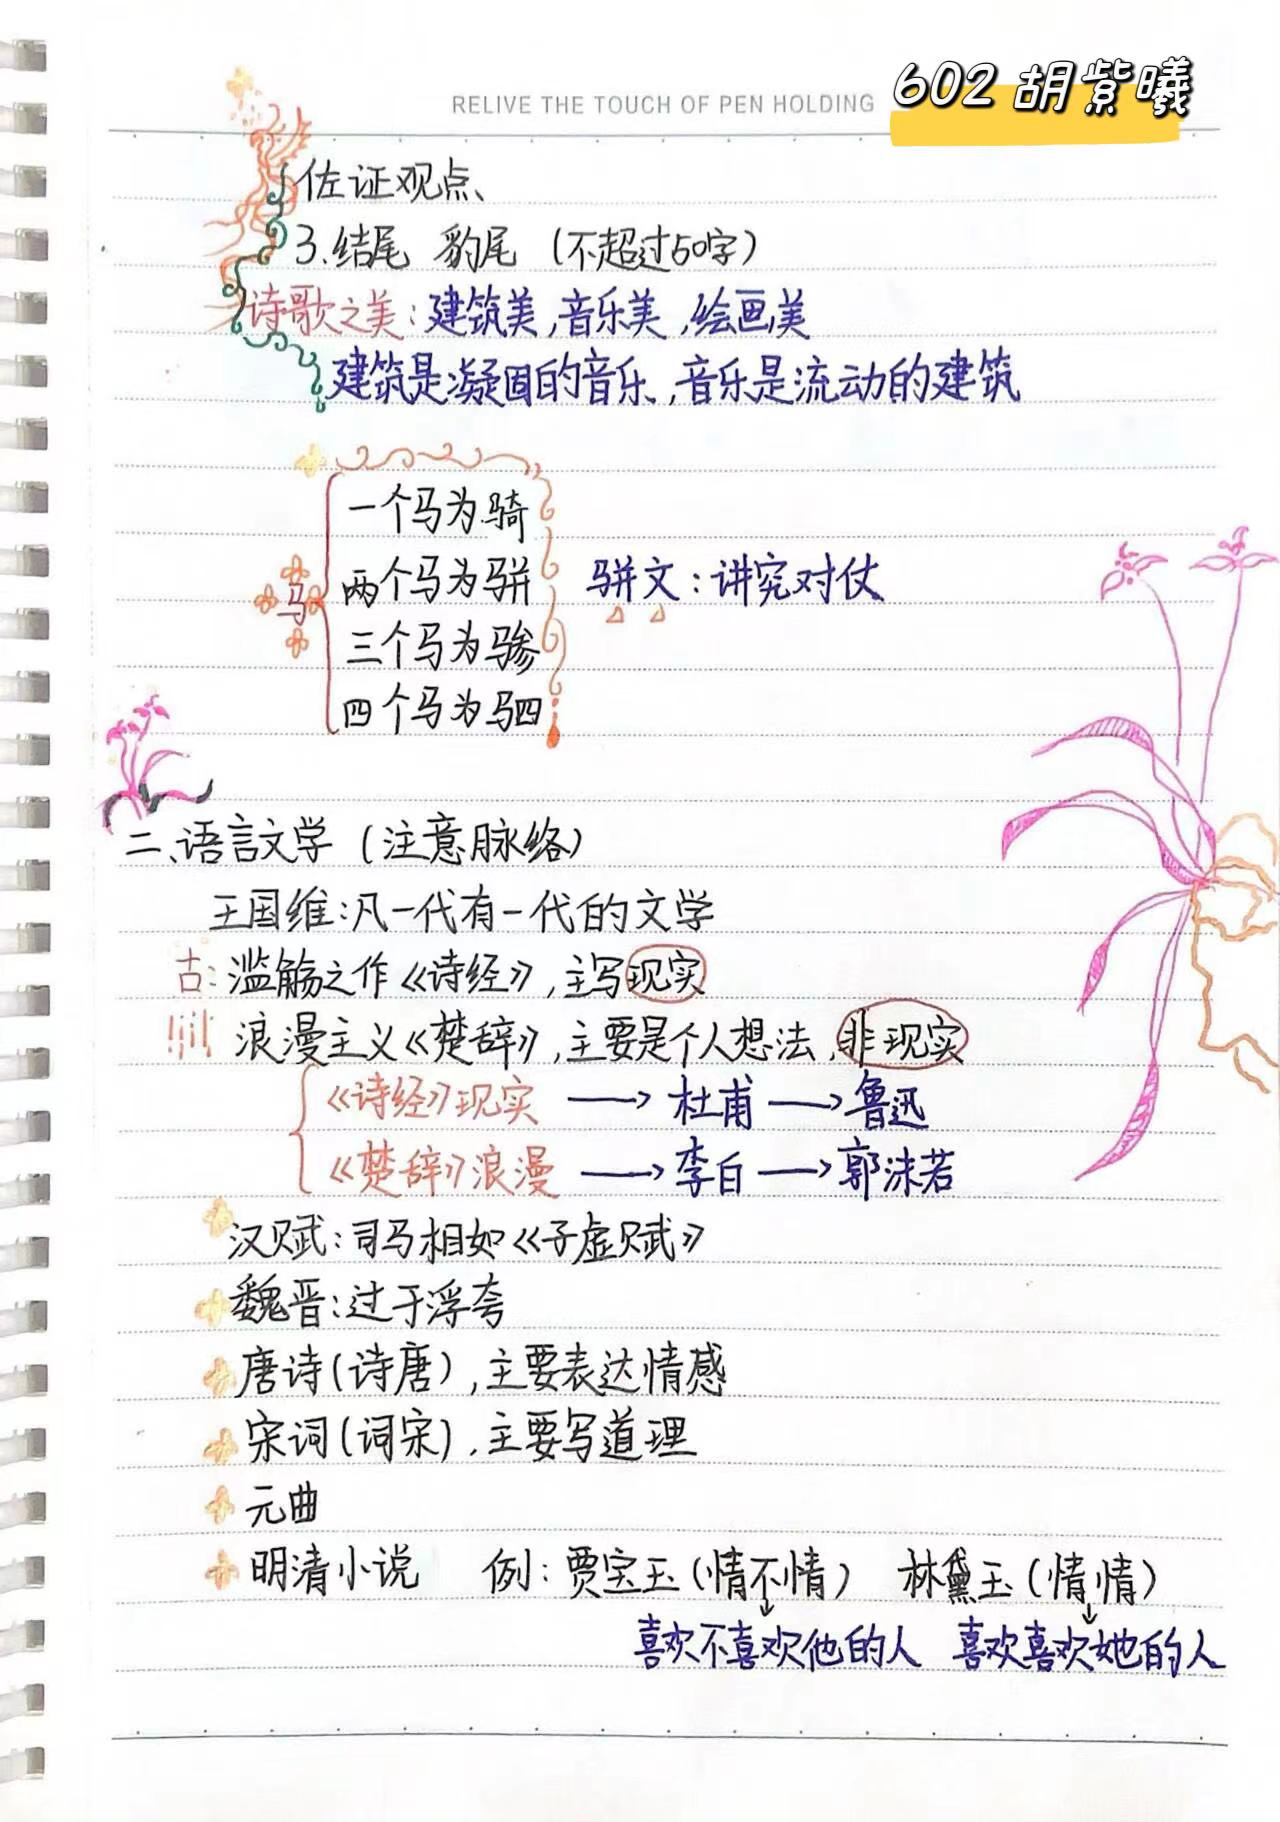 RELIVE THE TOUCH OF PEN HOLDING
602 胡紫曦
佐证观点、
3.结尾 豹尾 (不超过50字)
诗歌之美:建筑美,音乐美,绘画美
建筑是凝固的音乐,音乐是流动的建筑
一个马为骑
两个马为骈 骈文:讲究对仗
马
三个马为骖
四个马为驷
二、语言文学 (注意脉络)
王国维:凡一代有一代的文学
古:滥觞之作《诗经》,主写现实
浪漫主义《楚辞》,主要是个人想法,非现实
《诗经》现实 → 杜甫 → 鲁迅
《楚辞》浪漫 → 李白 → 郭沫若
汉赋:司马相如《子虚赋》
魏晋:过于浮夸
唐诗(诗唐),主要表达情感
宋词(词宋),主要写道理
元曲
明清小说 例:贾宝玉(情不情) 林黛玉(情情)
喜欢不喜欢他的人 喜欢喜欢她的人